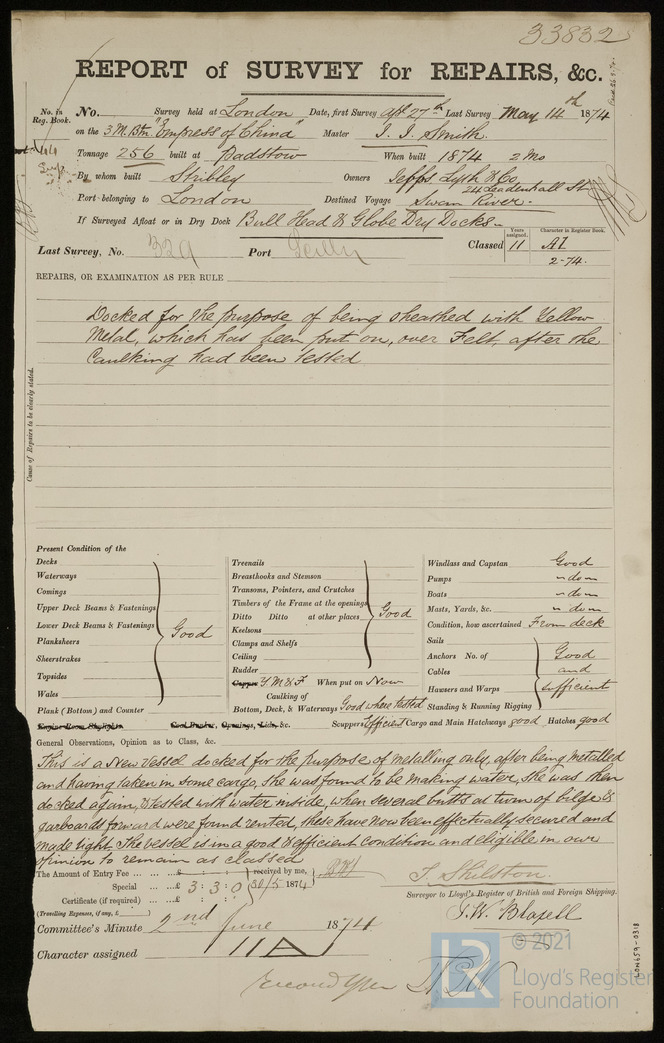 33832
REPORT of SURVEY for REPAIRS, &c.
No. in Reg. Book.
No. Survey held at London Date, first Survey Apl 27th Last Survey May 14th 1874
on the 3 M. Btn "Empress of China" Master J. J. Smith
Tonnage 256 built at Padstow When built 1874 2 Mo
By whom built Stribley Owners Jepps, Lyth & Co
24 Leadenhall St
Port belonging to London Destined Voyage Swan River.
If Surveyed Afloat or in Dry Dock Bull Head & Globe Dry Docks.
Last Survey, No. 329 Port Scilly Classed
Years assigned. 11
Character in Register Book. A1
2-74.
REPAIRS, OR EXAMINATION AS PER RULE
Docked for the purpose of being sheathed with Yellow
Metal, which has been put on, over Felt, after the
Caulking had been tested
Cause of Repairs to be clearly stated.
Present Condition of the
Decks
Waterways
Comings
Upper Deck Beams & Fastenings
Lower Deck Beams & Fastenings
Planksheers
Sheerstrakes
Topsides
Wales
Plank (Bottom) and Counter
Good
Engine Room Skylights Coal Bunker, Openings, Lids, &c.
Treenails
Breasthooks and Stemson
Transoms, Pointers, and Crutches
Timbers of the Frame at the openings
Ditto Ditto at other places
Keelsons
Clamps and Shelfs
Ceiling
Rudder
Good
Copper Y. M & F. When put on Now
Caulking of
Bottom, Deck, & Waterways Good where tested
Scuppers Efficient Cargo and Main Hatchways good Hatches good
Windlass and Capstan Good
Pumps " do "
Boats " do "
Masts, Yards, &c. " do "
Condition, how ascertained From deck
Sails
Anchors No. of
Cables
Hawsers and Warps
Standing & Running Rigging
Good
and
sufficient
General Observations, Opinion as to Class, &c.
This is a new vessel docked for the purpose of metalling only, after being metalled
and having taken in some cargo, she was found to be making water, she was then
docked again, & tested with water inside, when several butts at turn of bilge &
garboards forward were found rented, these have now been effectually secured and
made tight. The vessel is in a good & efficient condition and eligible in our
opinion to remain as classed
The Amount of Entry Fee ... £ : : received by me,
Special ... £ 3 : 3 : 0 30/5 1874
Certificate (if required) ... £ : :
(Travelling Expenses, if any, £ )
T. Shilston.
Surveyor to Lloyd's Register of British and Foreign Shipping.
Committee's Minute 2nd June 1874
Character assigned 11 A
LON659-0318
© 2021
Lloyd's Register
Foundation